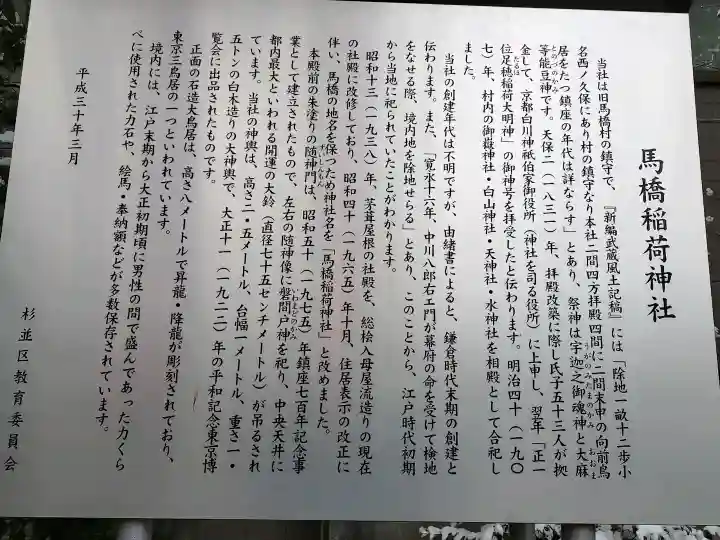 馬橋稲荷神社
当社は旧馬橋村の鎮守で、『新編武蔵風土記稿』には「除地一畝十二歩小
名西ノ久保にあり村の鎮守なり本社二間四方拝殿四間に二間末申の向前鳥
居をたつ鎮座の年代は詳ならす」とあり、祭神は宇迦之御魂神と大麻
等能豆神です。天保二(一八三一)年、拝殿改築に際し氏子五十三人が拠
金して、京都白川神祇伯家御役所(神社を司る役所)に上申し、翌年「正一
位足穂稲荷大明神」の御神号を拝受したと伝わります。明治四十(一九〇
七)年、村内の御嶽神社・白山神社・天神社・水神社を相殿として合祀し
ました。
当社の創建年代は不明ですが、由緒書によると、鎌倉時代末期の創建と
伝わります。また、「寛永十六年、中川八郎右エ門が幕府の命を受けて検地
をなせる際、境内地を除地せらる」とあり、このことから、江戸時代初期
から当地に祀られていたことがわかります。
昭和十三(一九三八)年、茅葺屋根の社殿を、総桧入母屋流造りの現在
の社殿に改修しており、昭和四十(一九六五)年十月、住居表示の改正に
伴い、馬橋の地名を保つため神社名を「馬橋稲荷神社」と改めました。
本殿前の朱塗りの随神門は、昭和五十(一九七五)年鎮座七百年記念事
業として建立されたもので、左右の随神像に磐間戸神を祀り、中央天井に
都内最大といわれる開運の大鈴(直径七十五センチメートル)が吊るされ
ています。当社の神輿は、高さ二・五メートル、台幅一メートル、重さ一・
五トンの白木造りの大神輿で、大正十一(一九二二)年の平和記念東京博
覧会に出品されたものです。
正面の石造大鳥居は、高さ八メートルで昇龍・降龍が彫刻されており、
東京三鳥居の一つといわれています。
境内には、江戸末期から大正初期頃に男性の間で盛んであった力くら
べに使用された力石や、絵馬・奉納額などが多数保存されています。
平成三十年三月
杉並区教育委員会